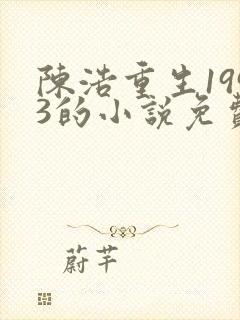 陳浩重生199
3的小說免費
蔚芊